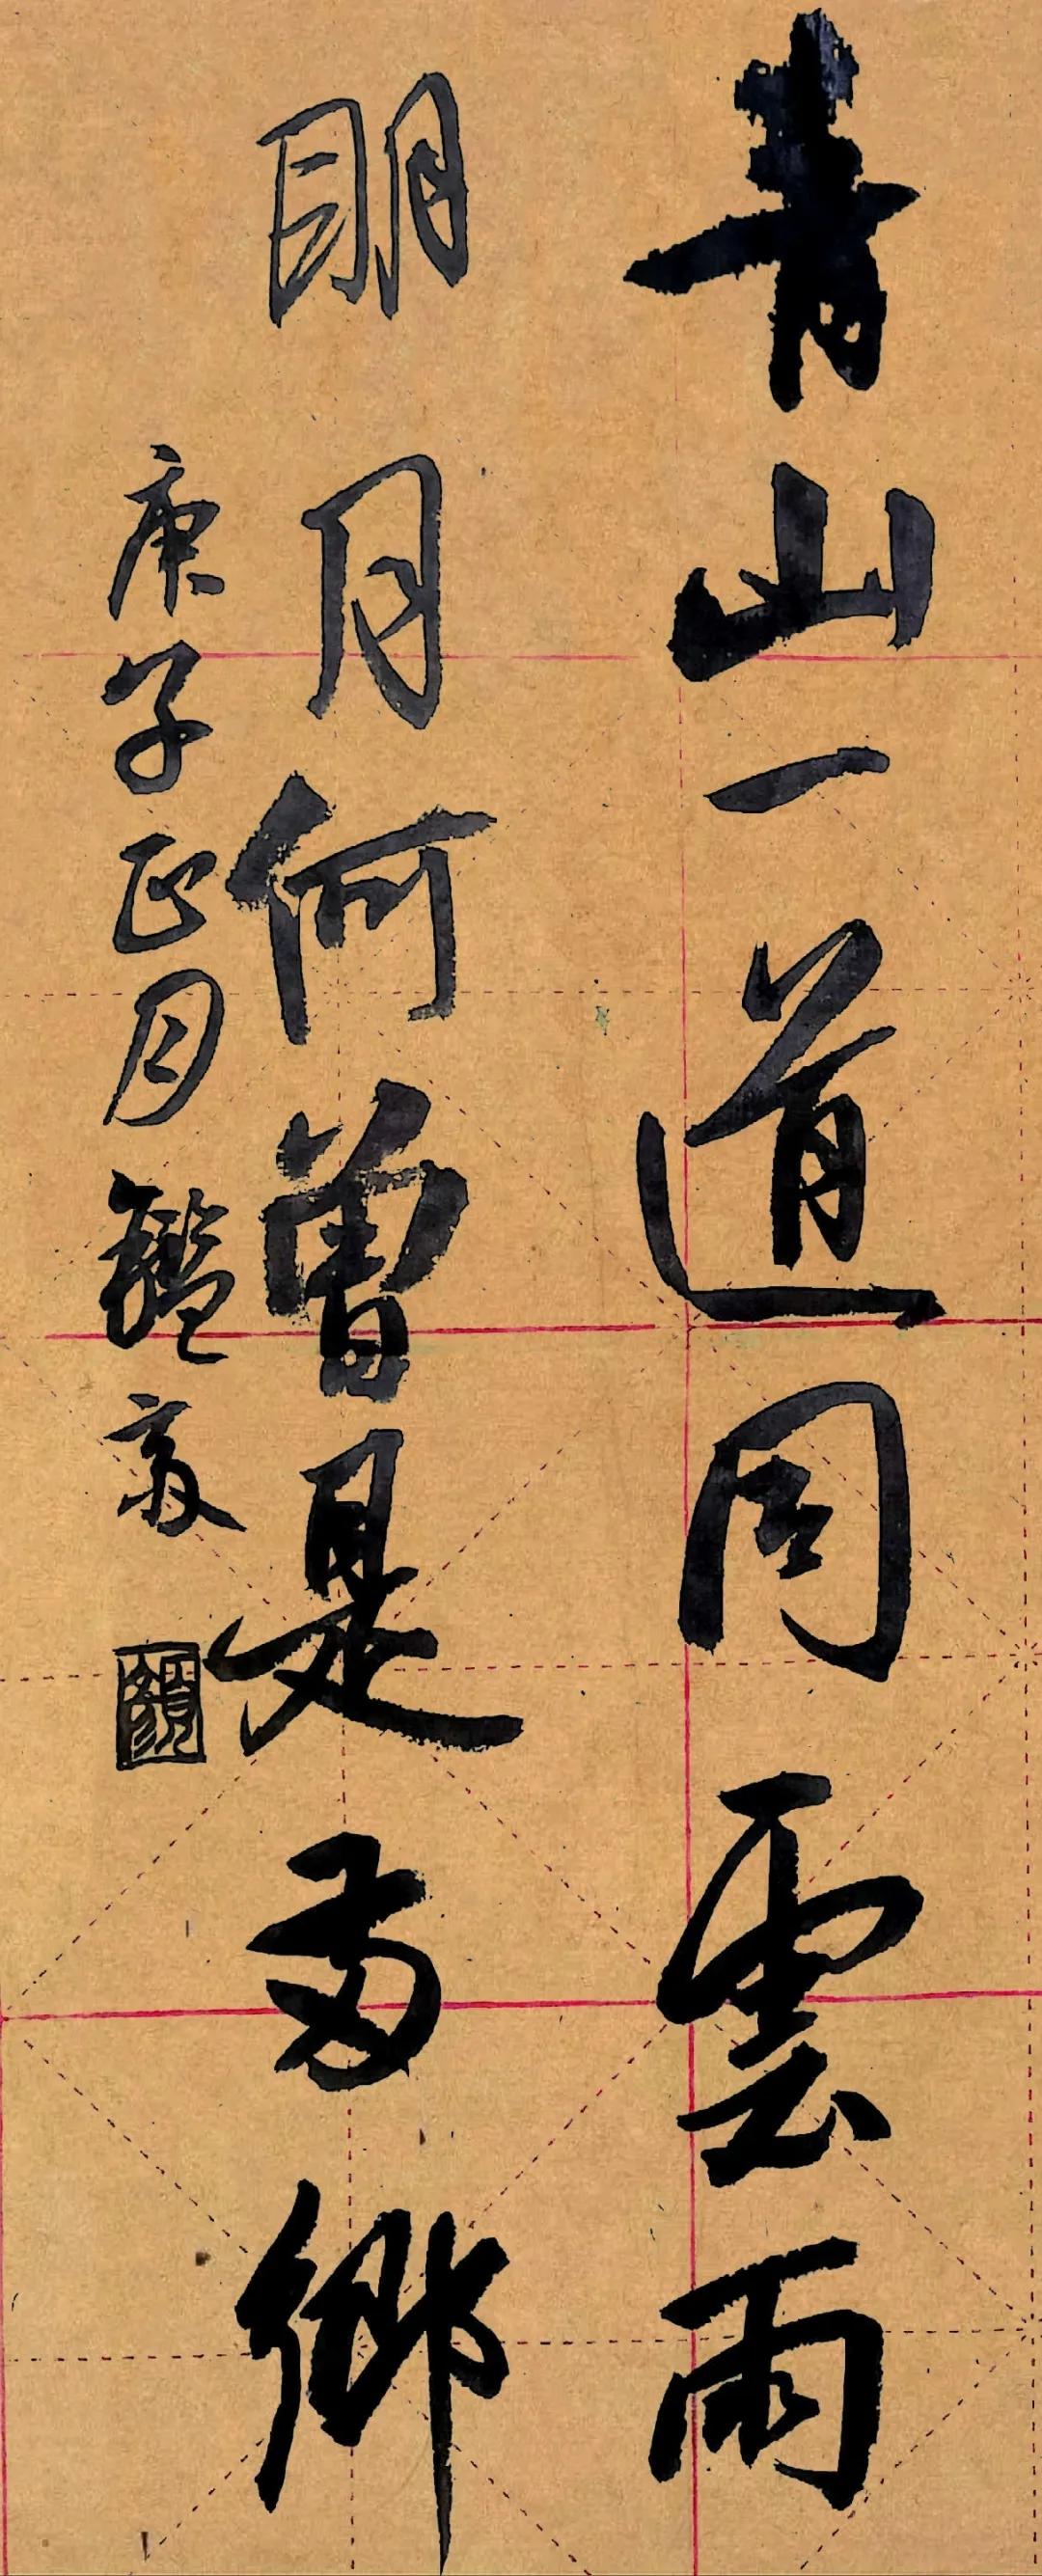 青山一道同雲雨
明月何曾是兩鄉
庚子正月鑑